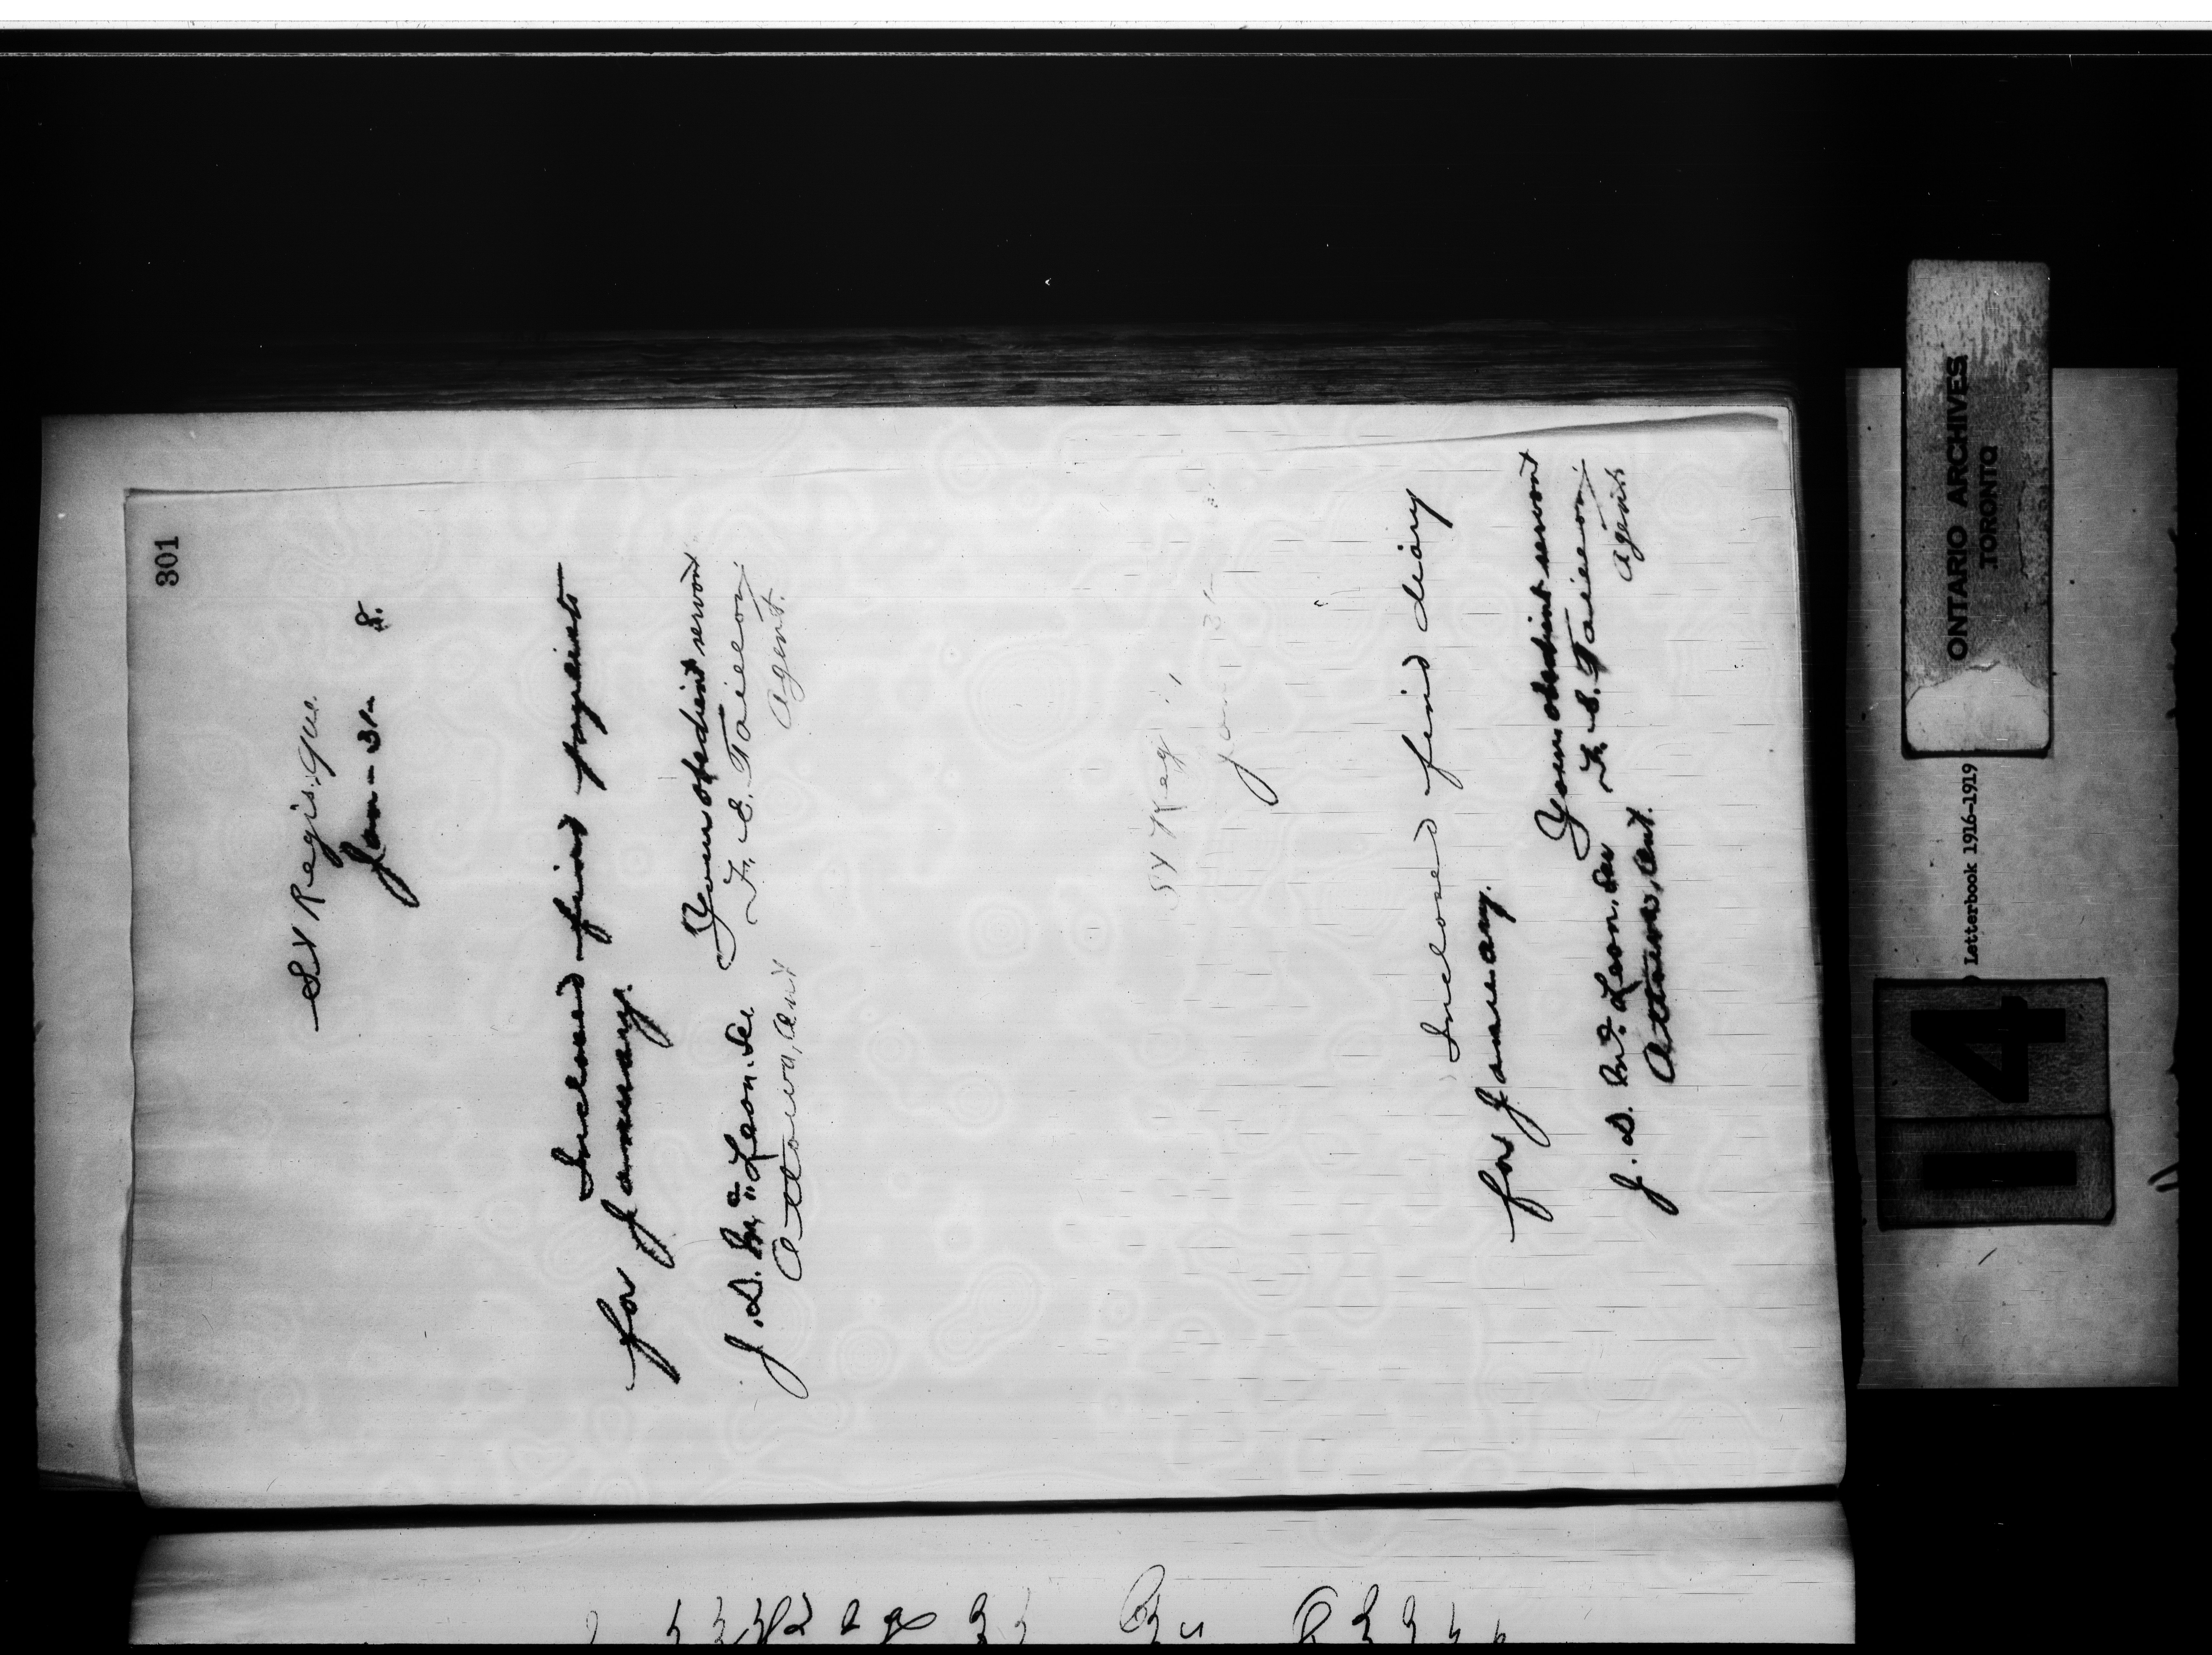 301
St Regis, Que.
Jan - 31 - 8.
Inclosed find payments
for January.
Your obedient servant
J. D. McLean, Sec F. E. Taillon,
Ottawa, Ont Agent.
St Regis,
Jan 31-
Inclosed find diary
for January.
Your obedient servant
J. D. McLean, Sec F. E. Taillon,
Ottawa, Ont. Agent
ONTARIO ARCHIVES
TORONTO
Letterbook 1916-1919
14